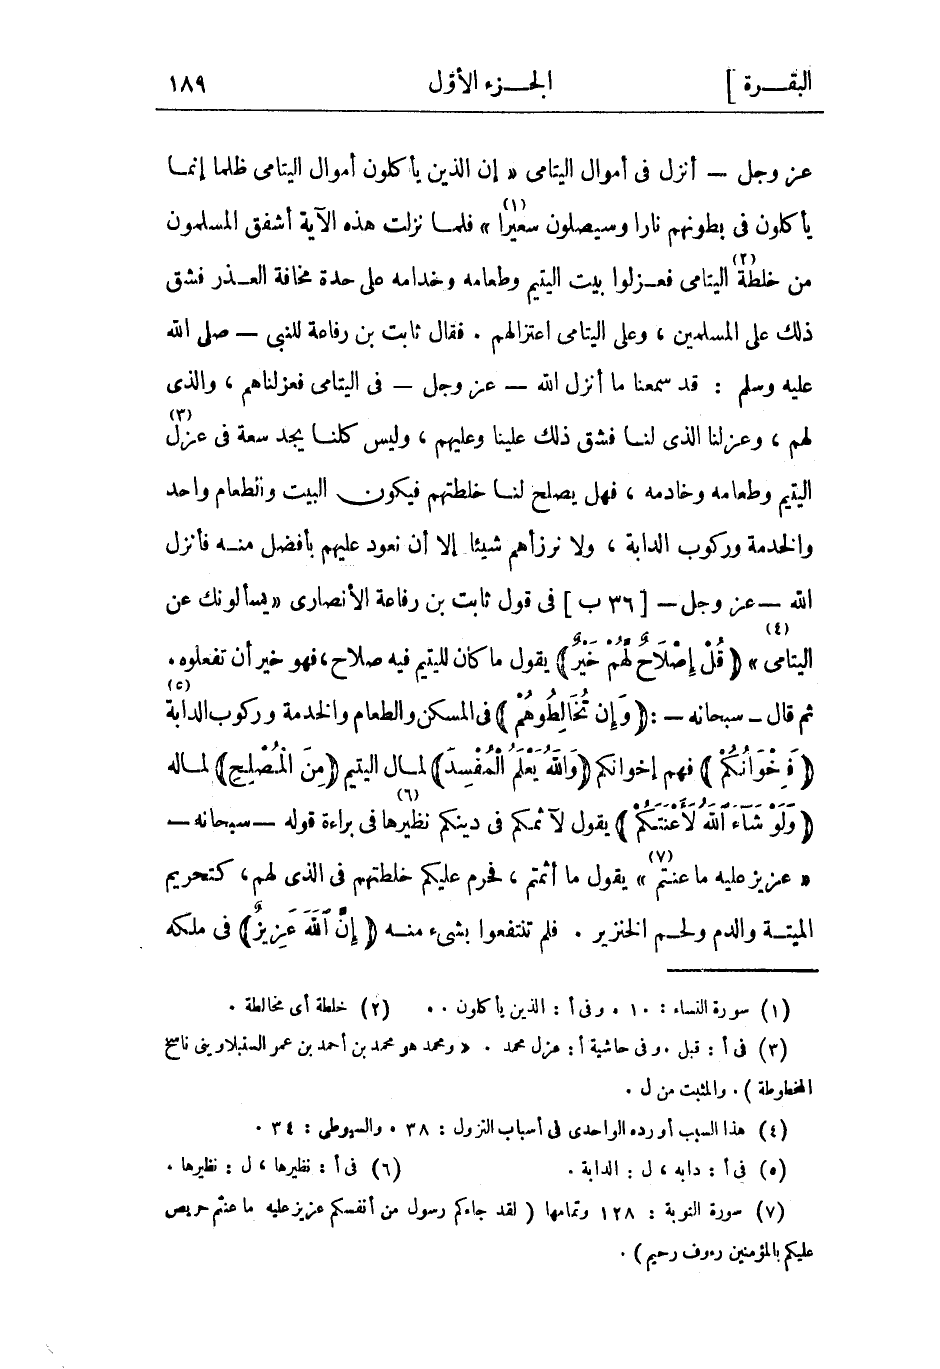 البقرة ]
الجزء الأوّل
١٨٩
عز وجل — أنزل فى أموال اليتامى « إن الذين يأكلون أموال اليتامى ظلما إنما
يأكلون فى بطونهم نارا وسيصلون سعيرا (١) » فلما نزلت هذه الآية أشفق المسلمون
من خلطة (٢) اليتامى فعزلوا بيت اليتيم وطعامه وخدامه على حدة مخافة العذر فشق
ذلك على المسلمين ، وعلى اليتامى اعتزالهم . فقال ثابت بن رفاعة للنبى — صلى الله
عليه وسلم : قد سمعنا ما أنزل الله — عز وجل — فى اليتامى فعزلناهم ، والذى
لهم ، وعزلنا الذى لنا فشق ذلك علينا وعليهم ، وليس كلنا يجد سعة فى عزل (٣)
اليتيم وطعامه وخادمه ، فهل يصلح لنا خلطتهم فيكون البيت والطعام واحد
والخدمة وركوب الدابة ، ولا نرزأهم شيئا إلا أن نعود عليهم بأفضل منه فأنزل
الله — عز وجل — [ ٣٦ ب ] فى قول ثابت بن رفاعة الأنصارى « يسألونك عن
اليتامى (٤) » ﴿ قُلْ إِصْلَاحٌ لَهُمْ خَيْرٌ ﴾ يقول ما كان لليتيم فيه صلاح ، فهو خير أن تفعلوه .
ثم قال — سبحانه — : ﴿ وَإِن تُخَالِطُوهُمْ ﴾ فى المسكن والطعام والخدمة وركوب الدابة (٥)
﴿ فَإِخْوَانُكُمْ ﴾ فهم إخوانكم ﴿ وَاللَّهُ يَعْلَمُ الْمُفْسِدَ ﴾ لمال اليتيم ﴿ مِنَ الْمُصْلِحِ ﴾ لماله
﴿ وَلَوْ شَآءَ ٱللَّهُ لَأَعْنَتَكُمْ ﴾ يقول لآثمكم فى دينكم نظيرها (٦) فى براءة قوله — سبحانه —
« عزيز عليه ما عنتم (٧) » يقول ما أثمتم ، فحرم عليكم خلطتهم فى الذى لهم ، كتحريم
الميتة والدم ولحم الخنزير . فلم تنتفعوا بشىء منه ﴿ إِنَّ ٱللَّهَ عَزِيزٌ ﴾ فى ملكه
(١) سورة النساء : ١٠ . وفى أ : الذين يأكلون . . (٢) خلطة أى مخالطة .
(٣) فى أ : قبل . وفى حاشية أ : عزل محمد . « ومحمد هو محمد بن أحمد بن عمر السنبلاوينى ناسخ
المخطوطة ) . والمثبت من ل .
(٤) هذا السبب أورده الواحدى فى أسباب النزول : ٣٨ . والسيوطى : ٣٤ .
(٥) فى أ : دابه ، ل : الدابة . (٦) فى أ : نظيرها ، ل : نظيرها .
(٧) سورة التوبة : ١٢٨ وتمامها ( لقد جاءكم رسول من أنفسكم عزيز عليه ما عنتم حريص
عليكم بالمؤمنين رءوف رحيم ) .